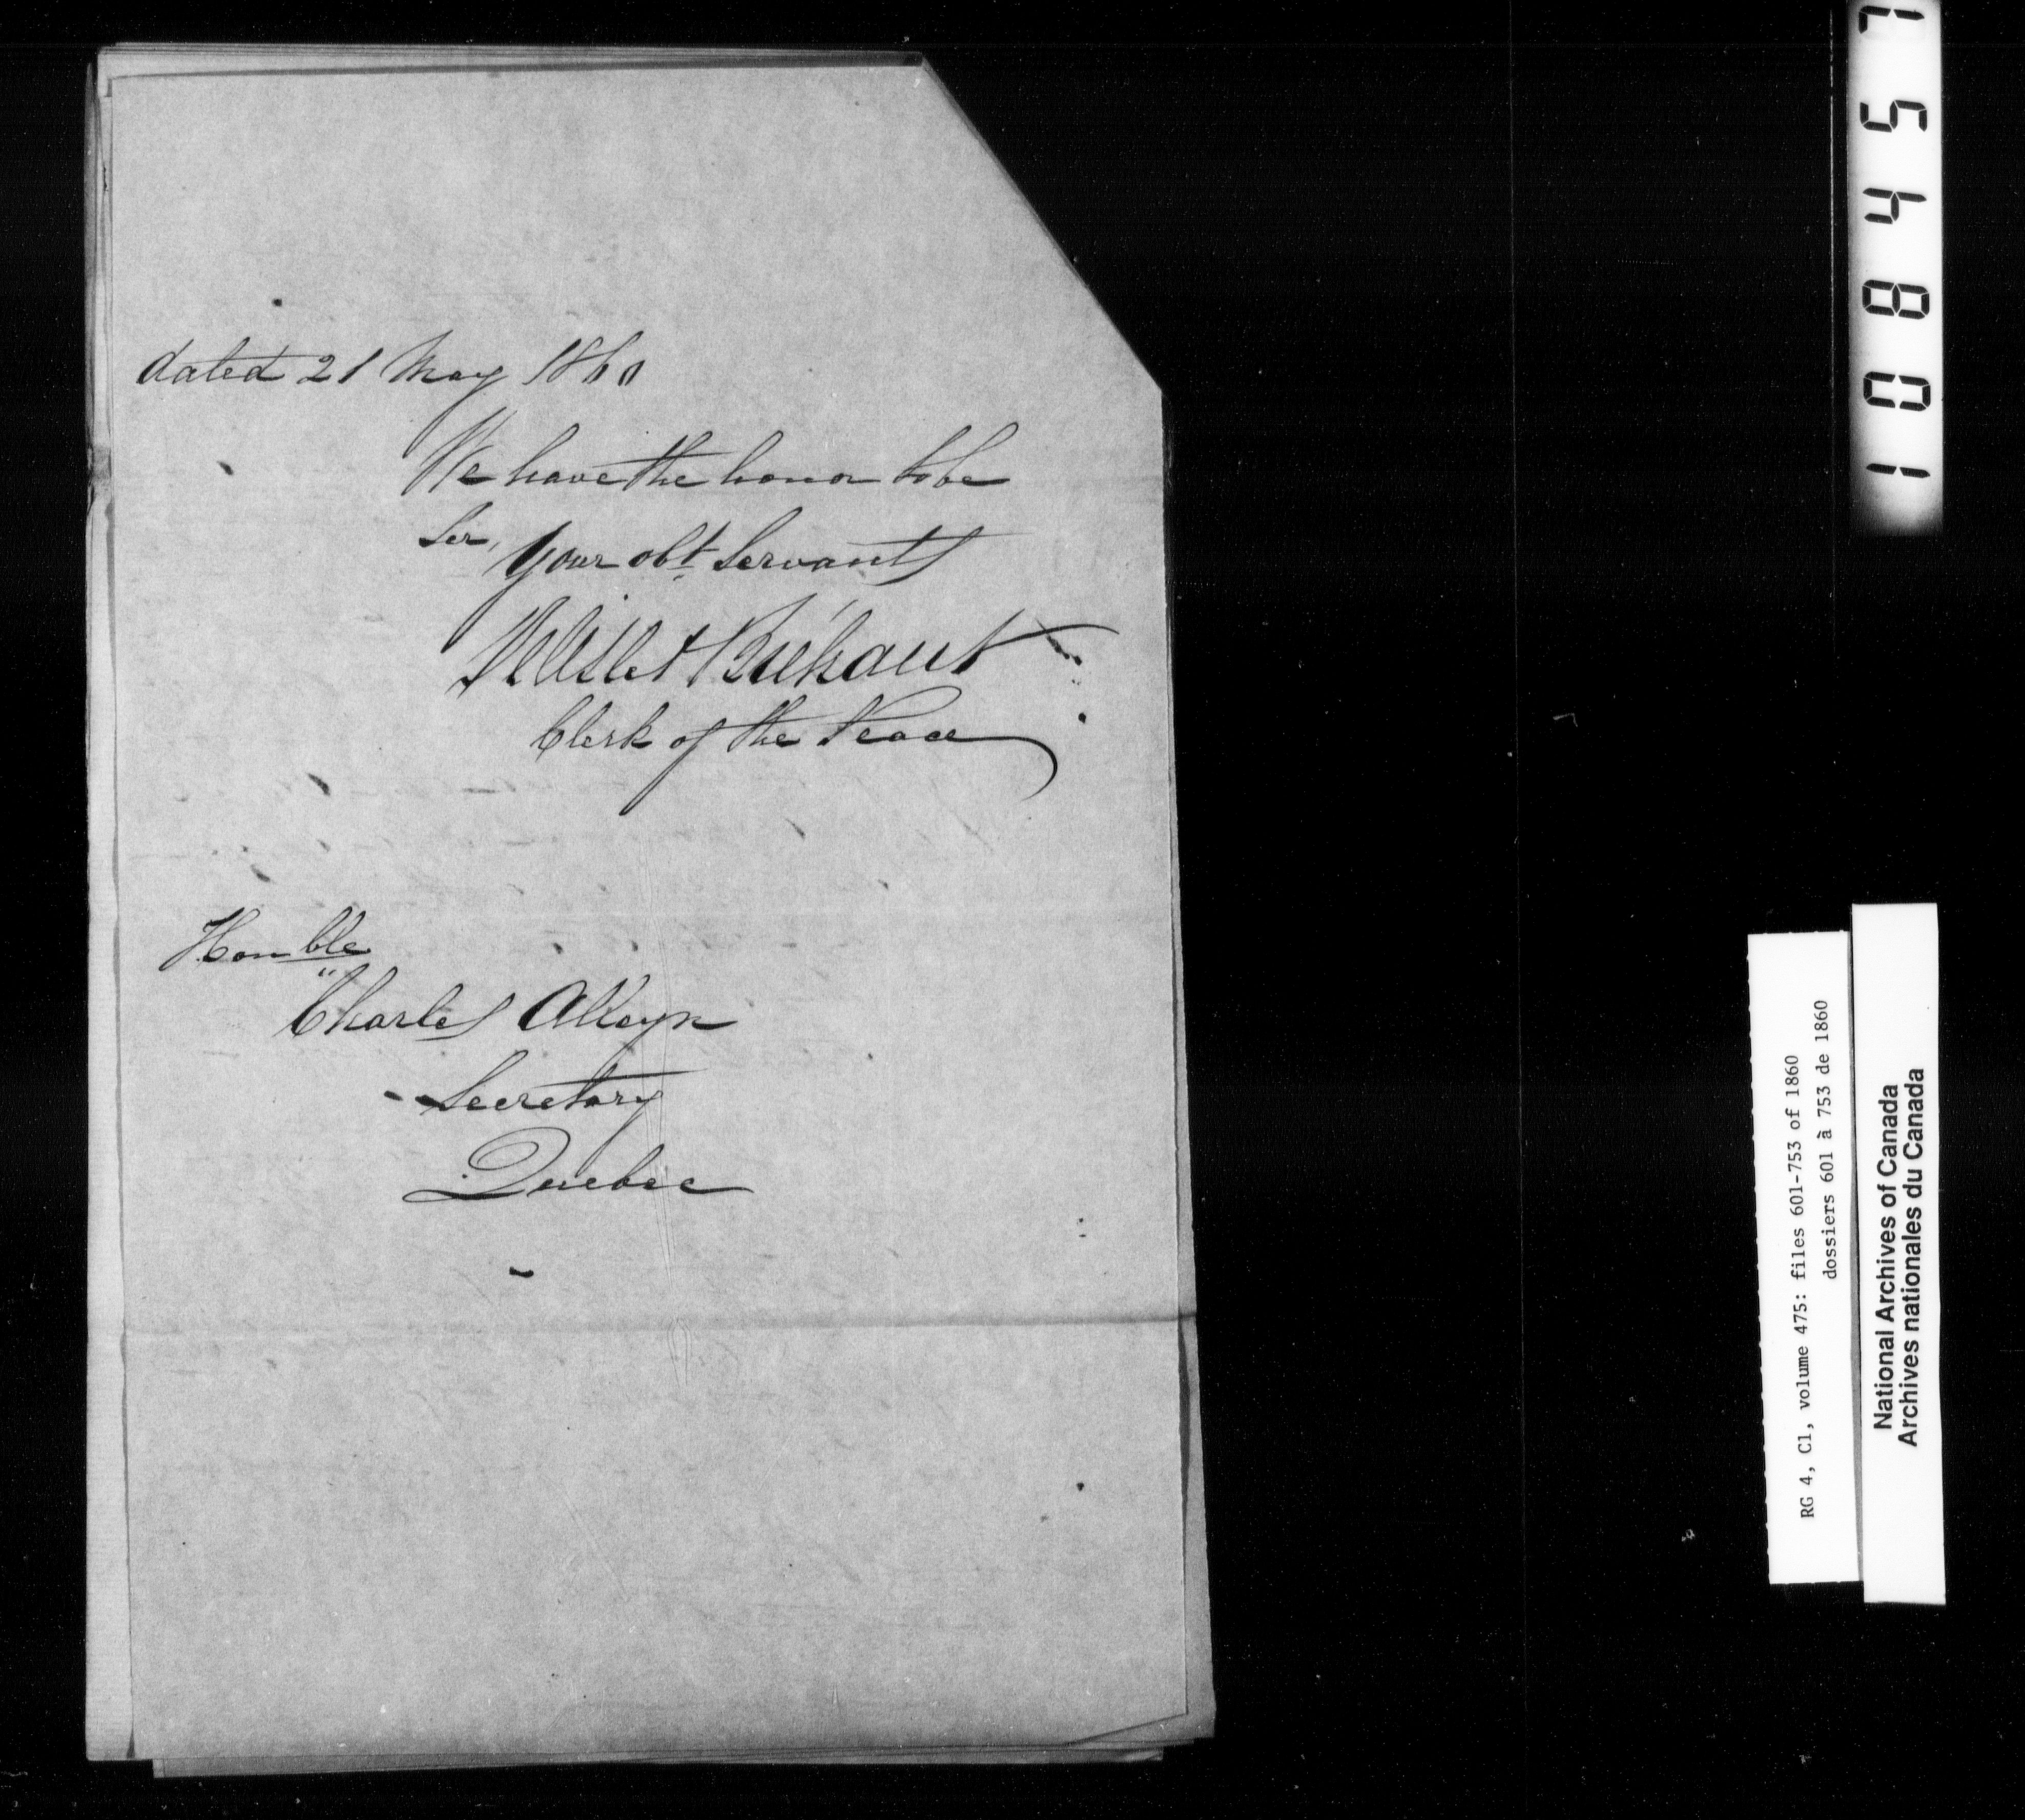 dated 21 May 1860
We have the honor to be
Sir,
your obt. Servants
Delisle & Bréhaut
Clerk of the Peace
Honble
Charles Alleyn
Secretary
Quebec
108457
RG 4, C1, volume 475: files 601-753 of 1860
dossiers 601 à 753 de 1860
National Archives of Canada
Archives nationales du Canada